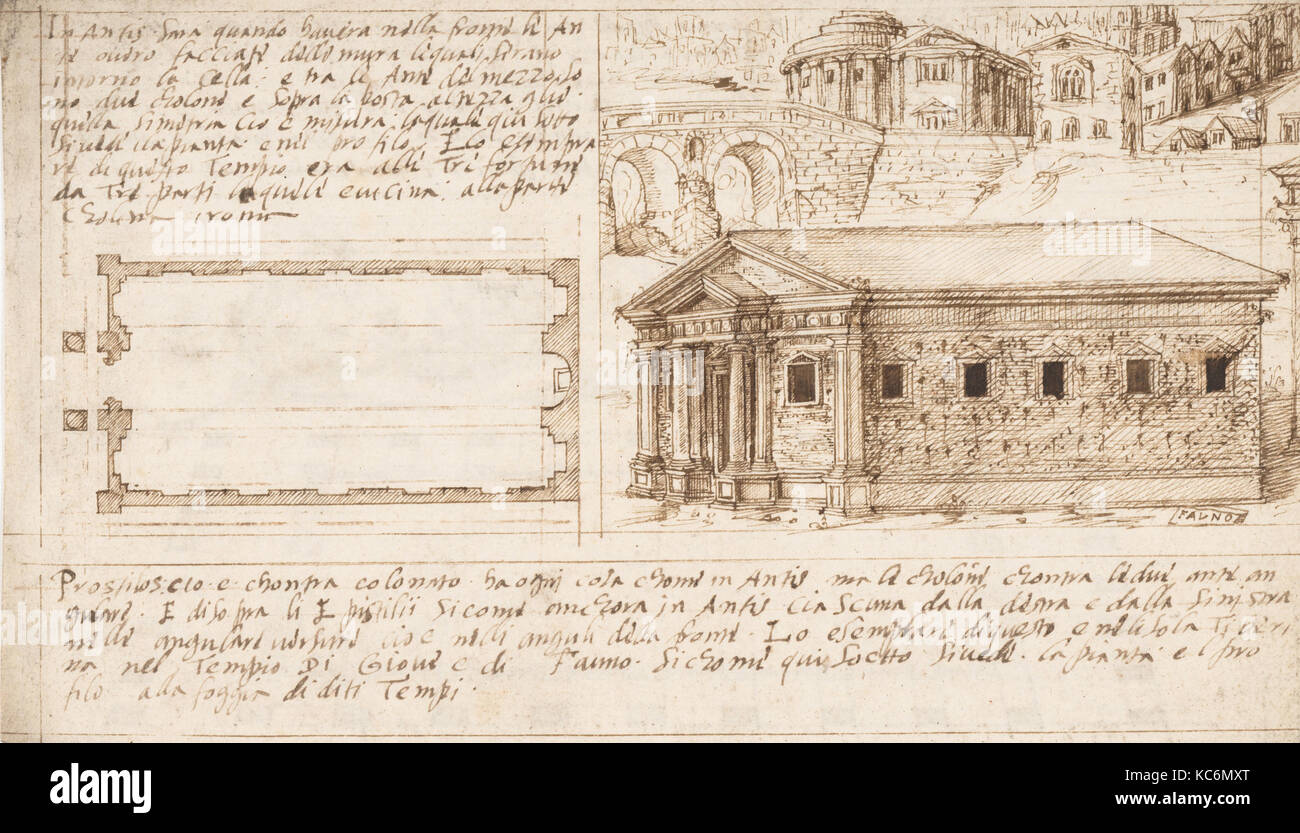 In Antis sara quando havera nella fronte li An
te overo facciate delle mura lequali serano
intorno la cella: e tra le Ante de mezzo, so
no due cholone e sopra la posta altezza
quella simetria cio e misura laquale qui sotto
si vede la pianta e nel profilo. Lo esempla
re di questo Tempio, era alle Tri fortune
da Tre parti laquale e vicina alla parte
FAVNO
Prostilos cio e chontra colonato ha ogni cosa chome in Antis ma le cholone chontra le due ante an
gulare. E di sopra li Epistilii si come anchora in Antis ciascuna dalla destra e dalla sinistra
nelle angulare versure cio e nelli anguli della fronte. Lo esemplare di questo e nel isola Tiberi
na nel Tempio Di Giove e di Fauno si chome qui sotto si vede la pianta e l pro
filo alla foggia di diti Tempi.
alamy
alamy stock photo
Image ID: KC6MXT
www.alamy.com